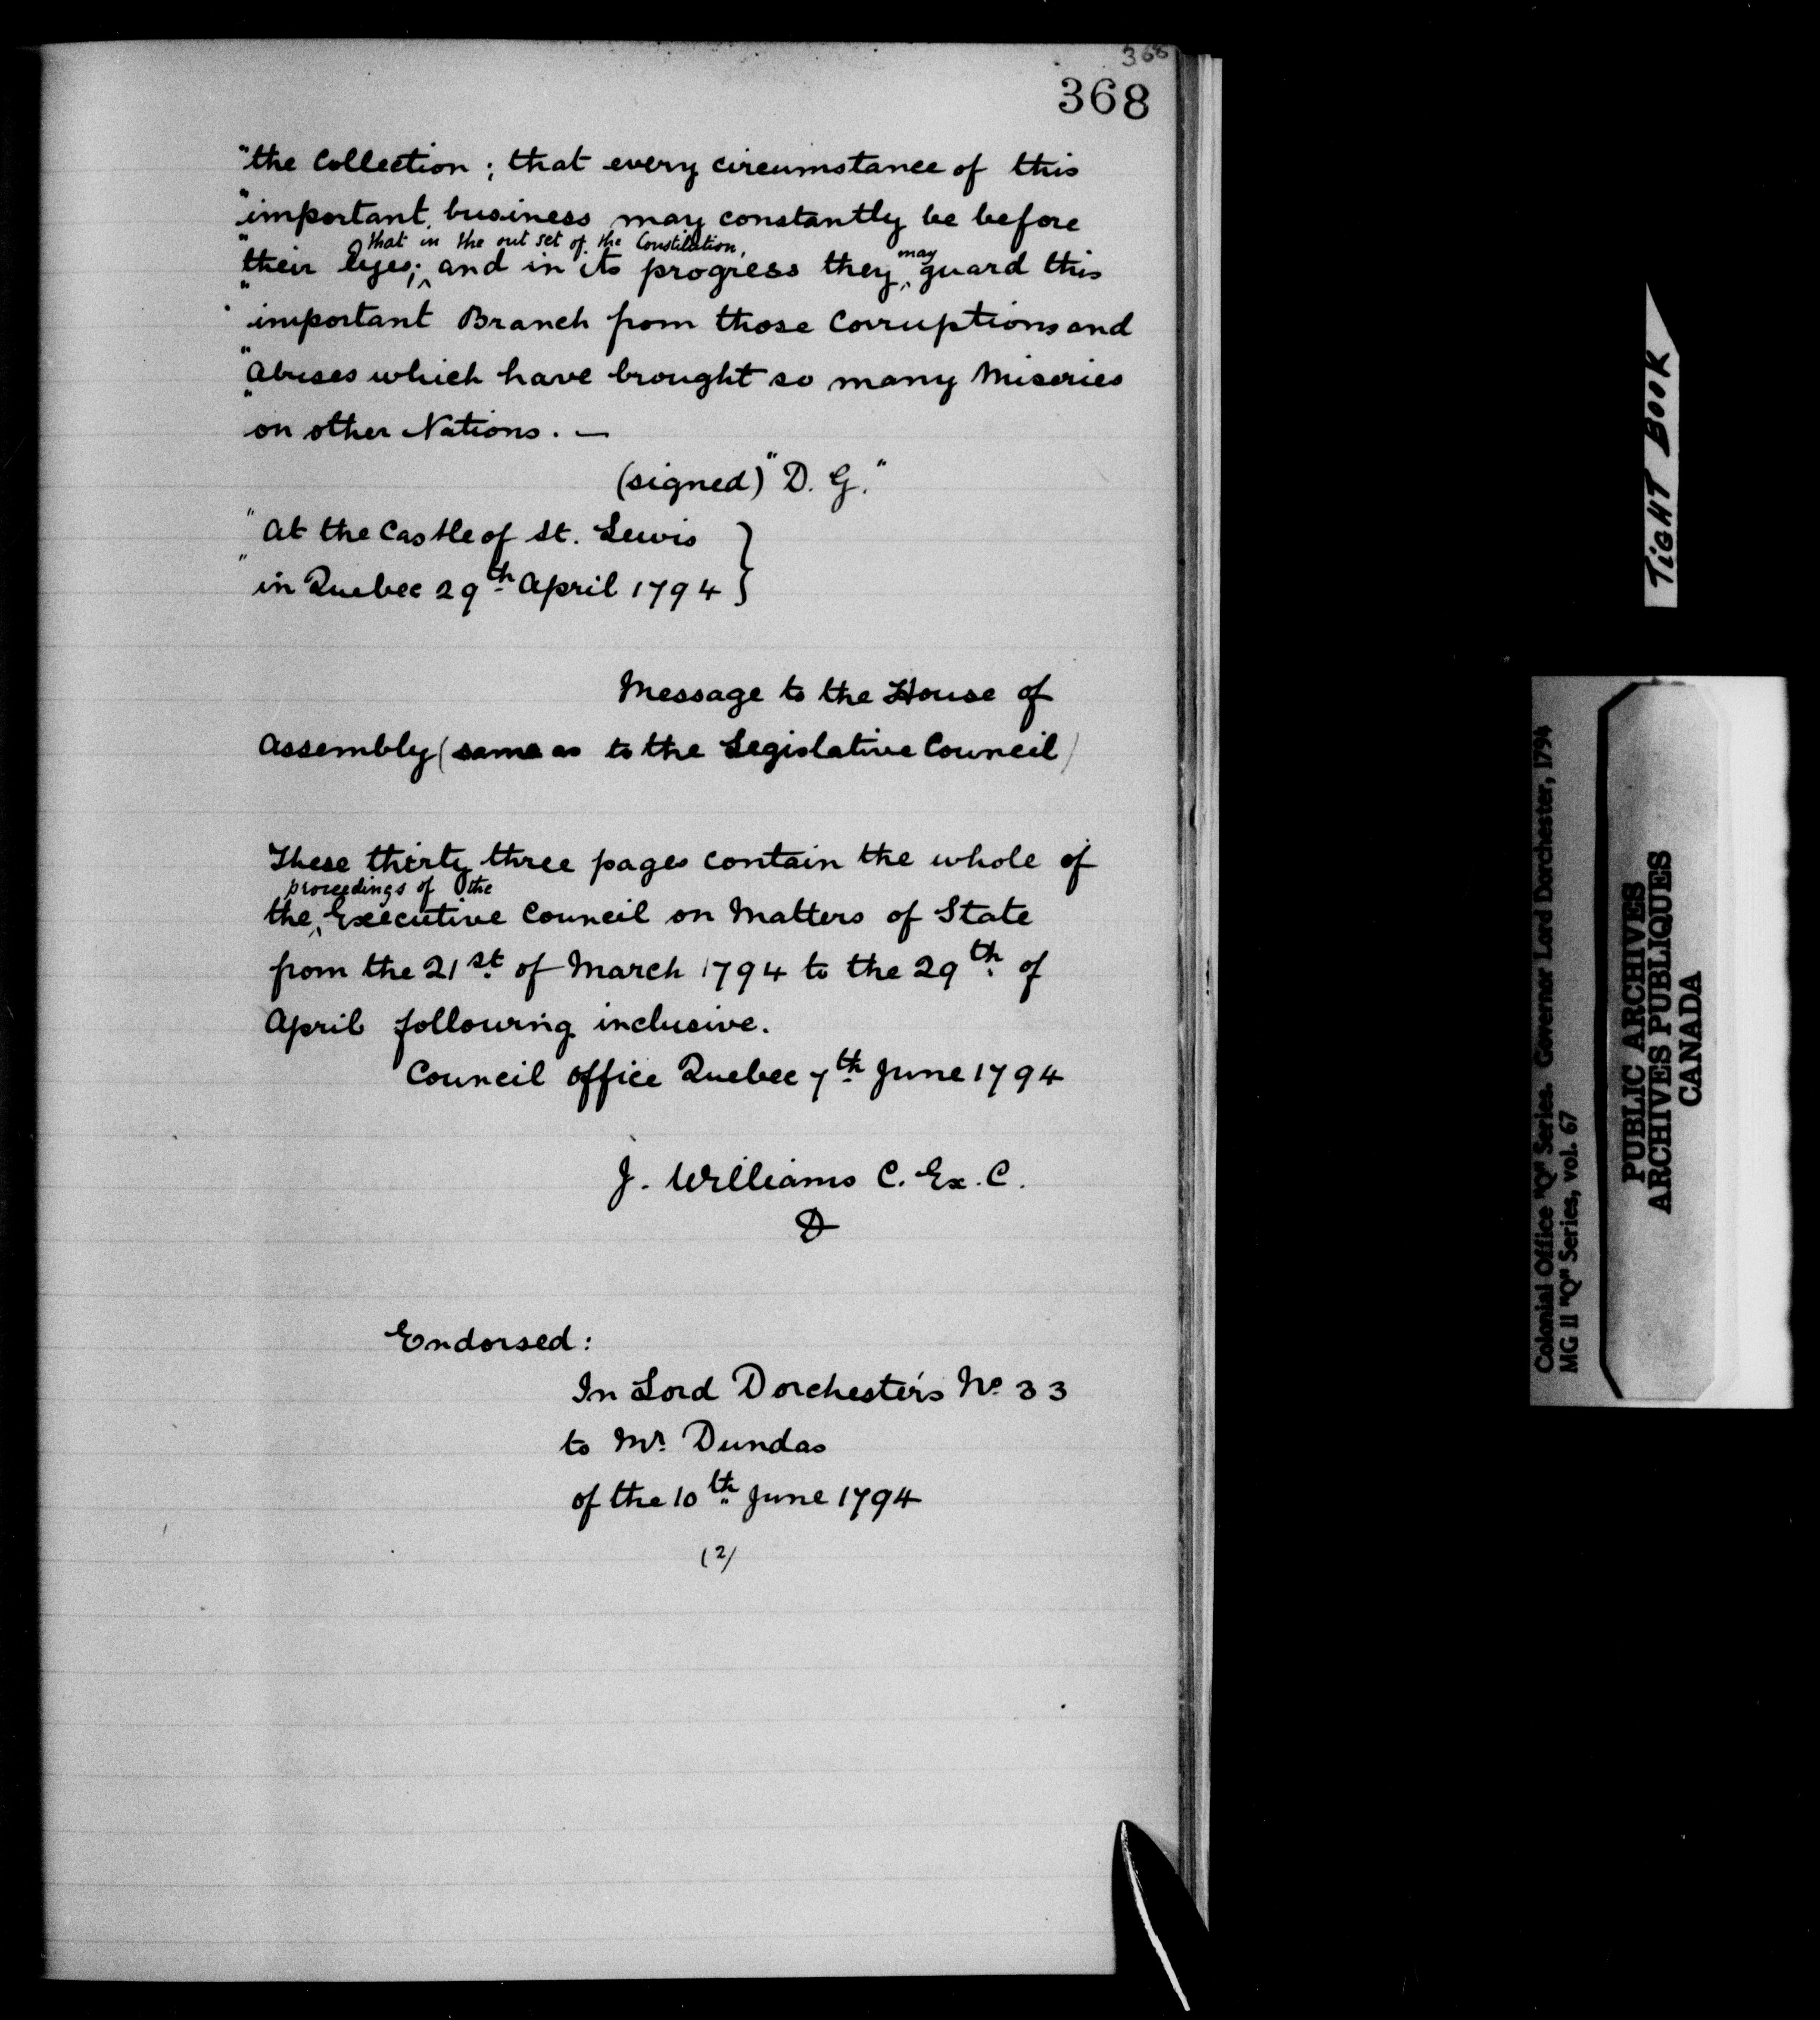 368
368
"the Collection; that every circumstance of this
"important business may constantly be before
that in the out set of the Constitution,
"their Eyes; ^ and in its progress they ^ may guard this
"important Branch from those Corruptions and
"Abuses which have brought so many Miseries
"on other Nations. —
(signed) "D. G."
"At the Castle of St. Lewis
"in Quebec 29th April 1794 }
Message to the House of
Assembly (same as to the Legislative Council)
These thirty three pages contain the whole of
proceedings of the
the ^ Executive Council on Matters of State
from the 21st of March 1794 to the 29th of
April following inclusive.
Council Office Quebec 7th June 1794
J. Williams C. Ex. C.
D
Endorsed:
In Lord Dorchester's No 33
to Mr Dundas
of the 10th June 1794
(2)
TIGHT BOOK
Colonial Office "Q" Series. Governor Lord Dorchester, 1794
MG 11 "Q" Series, vol. 67
PUBLIC ARCHIVES
ARCHIVES PUBLIQUES
CANADA